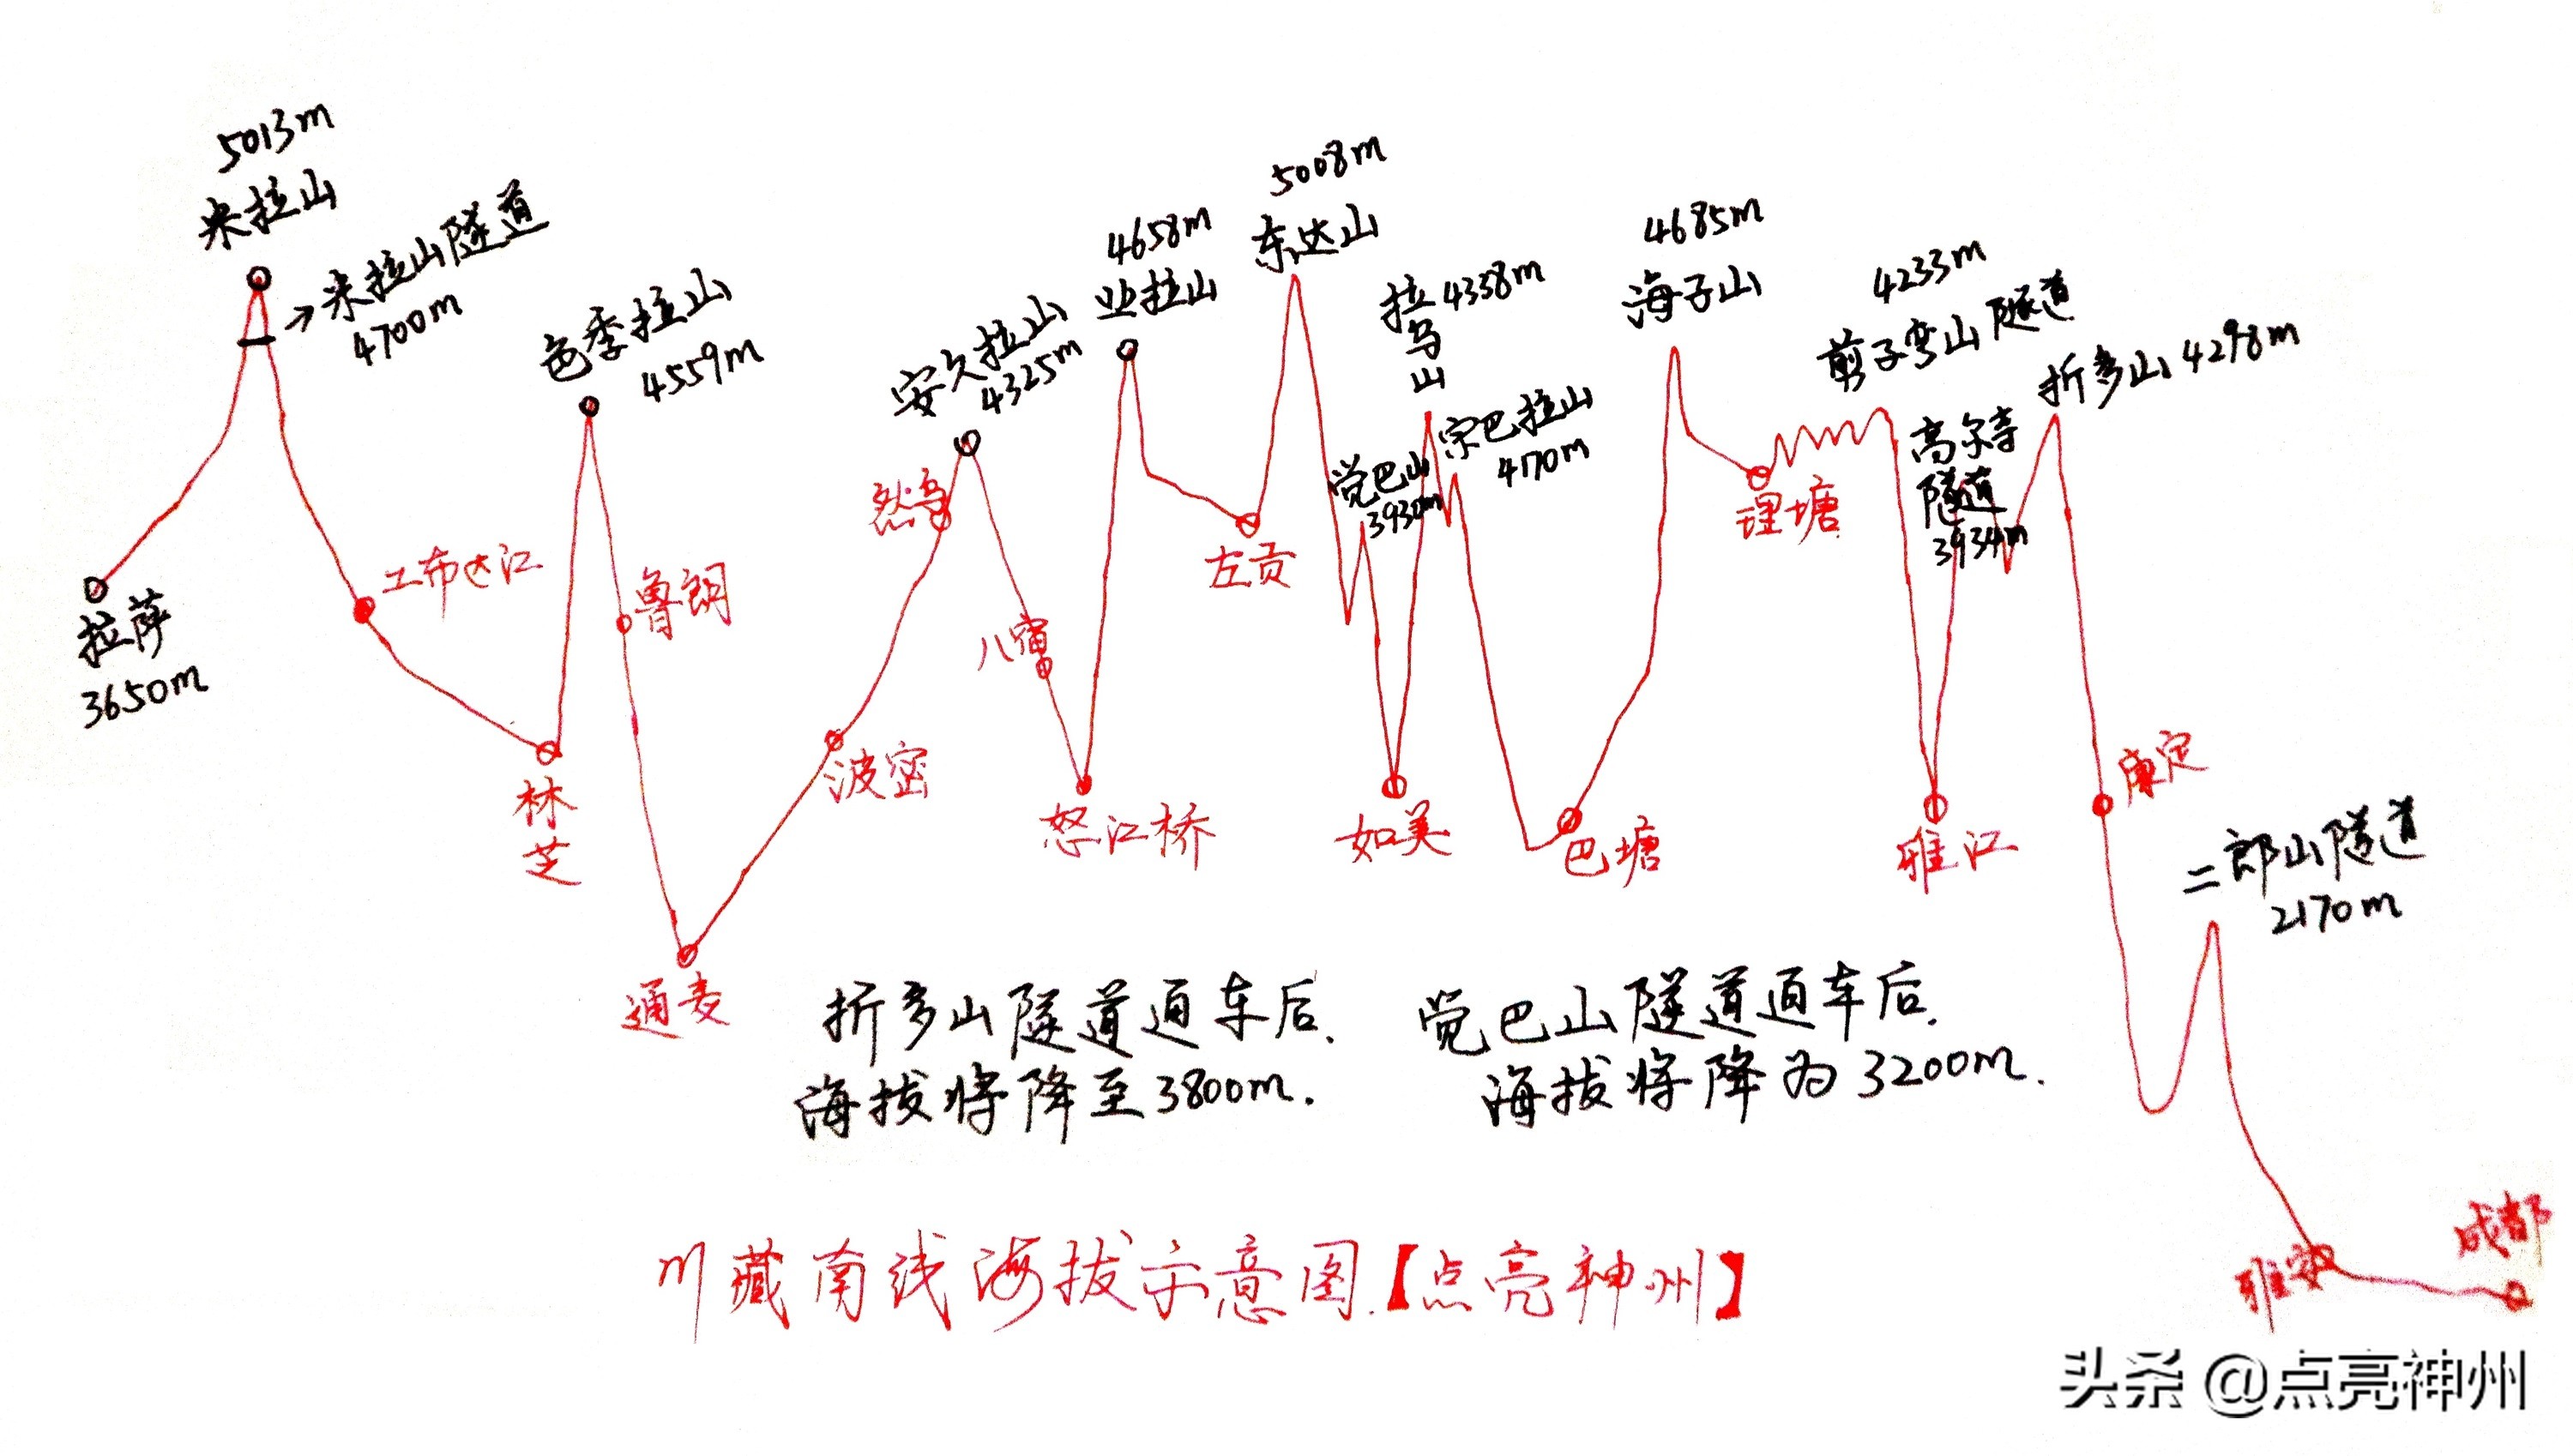 5013m
米拉山
→米拉山隧道
4700m
拉萨
3650m
工布达江
林芝
色季拉山
4559m
鲁朗
通麦
波密
然乌
安久拉山
4325m
八宿
怒江桥
4658m
业拉山
左贡
5008m
东达山
觉巴山
3930m
如美
拉乌山
4338m
宗巴拉山
4170m
巴塘
4685m
海子山
理塘
4233m
剪子弯山隧道
雅江
高尔寺
隧道
3934m
折多山4298m
康定
二郎山隧道
2170m
雅安
成都
折多山隧道通车后.
海拔将降至3800m.
觉巴山隧道通车后.
海拔将降为3200m.
川藏南线海拔示意图.【点亮神州】
头条 @点亮神州